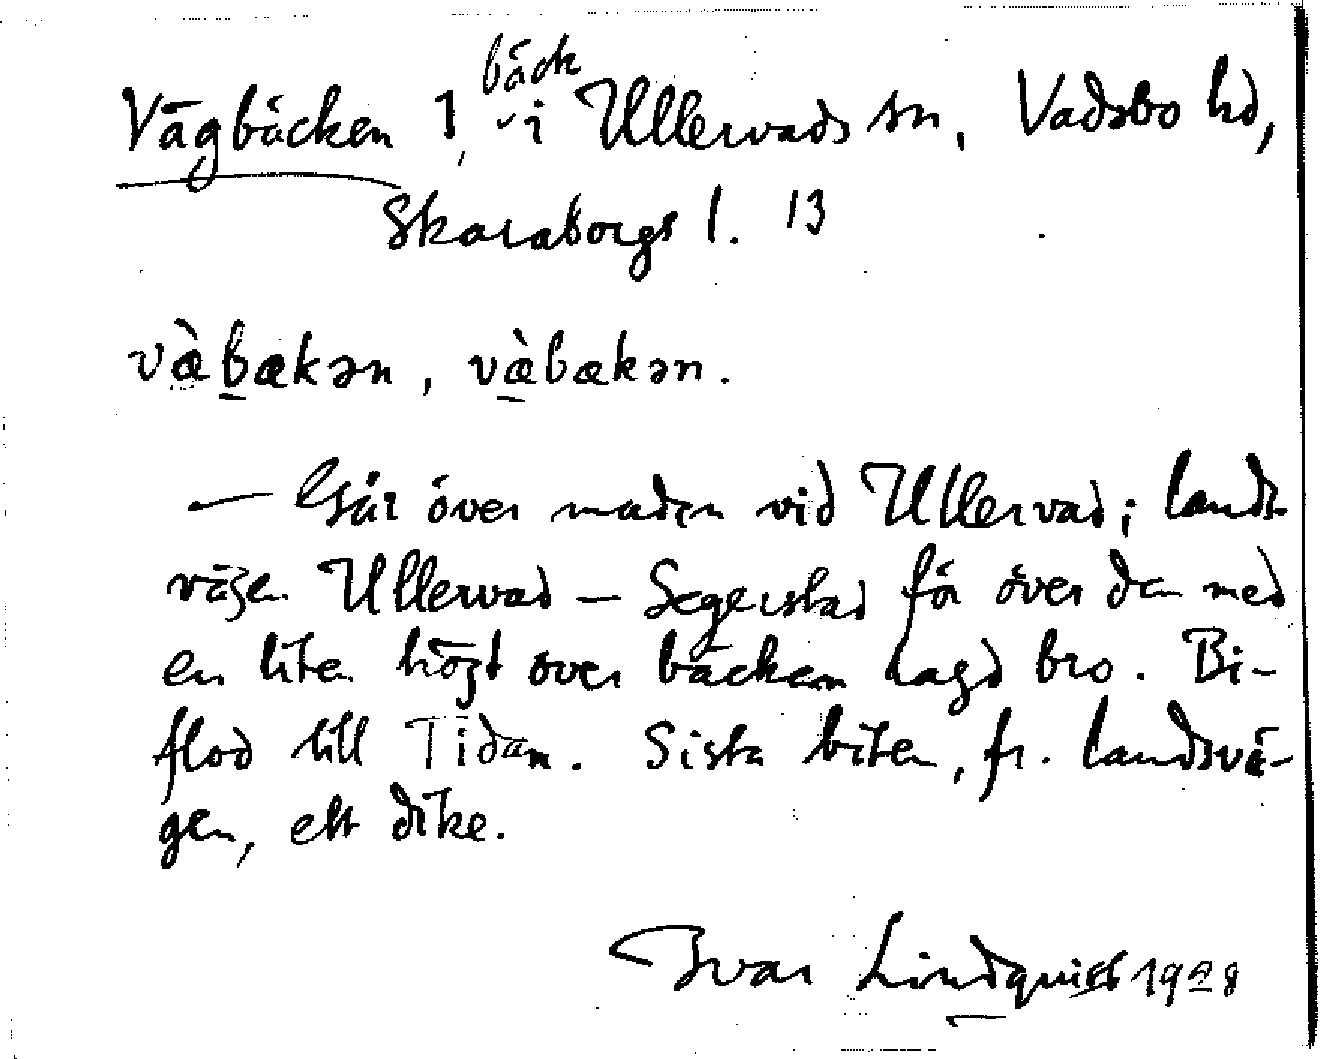 Vägbäcken 1, bäck i Ullervads sn, Vadsbo hd,
Skaraborgs l. 13
væ̀bækən, væ̀bækən.
— Går över maden vid Ullervad; lands-
vägen Ullervad – Segerstad får över den med
en liten högt över bäcken lagd bro. Bi-
flod till Tidan. Sista biten, fr. landsvä-
gen, ett dike.
Ivar Lindquist 1928